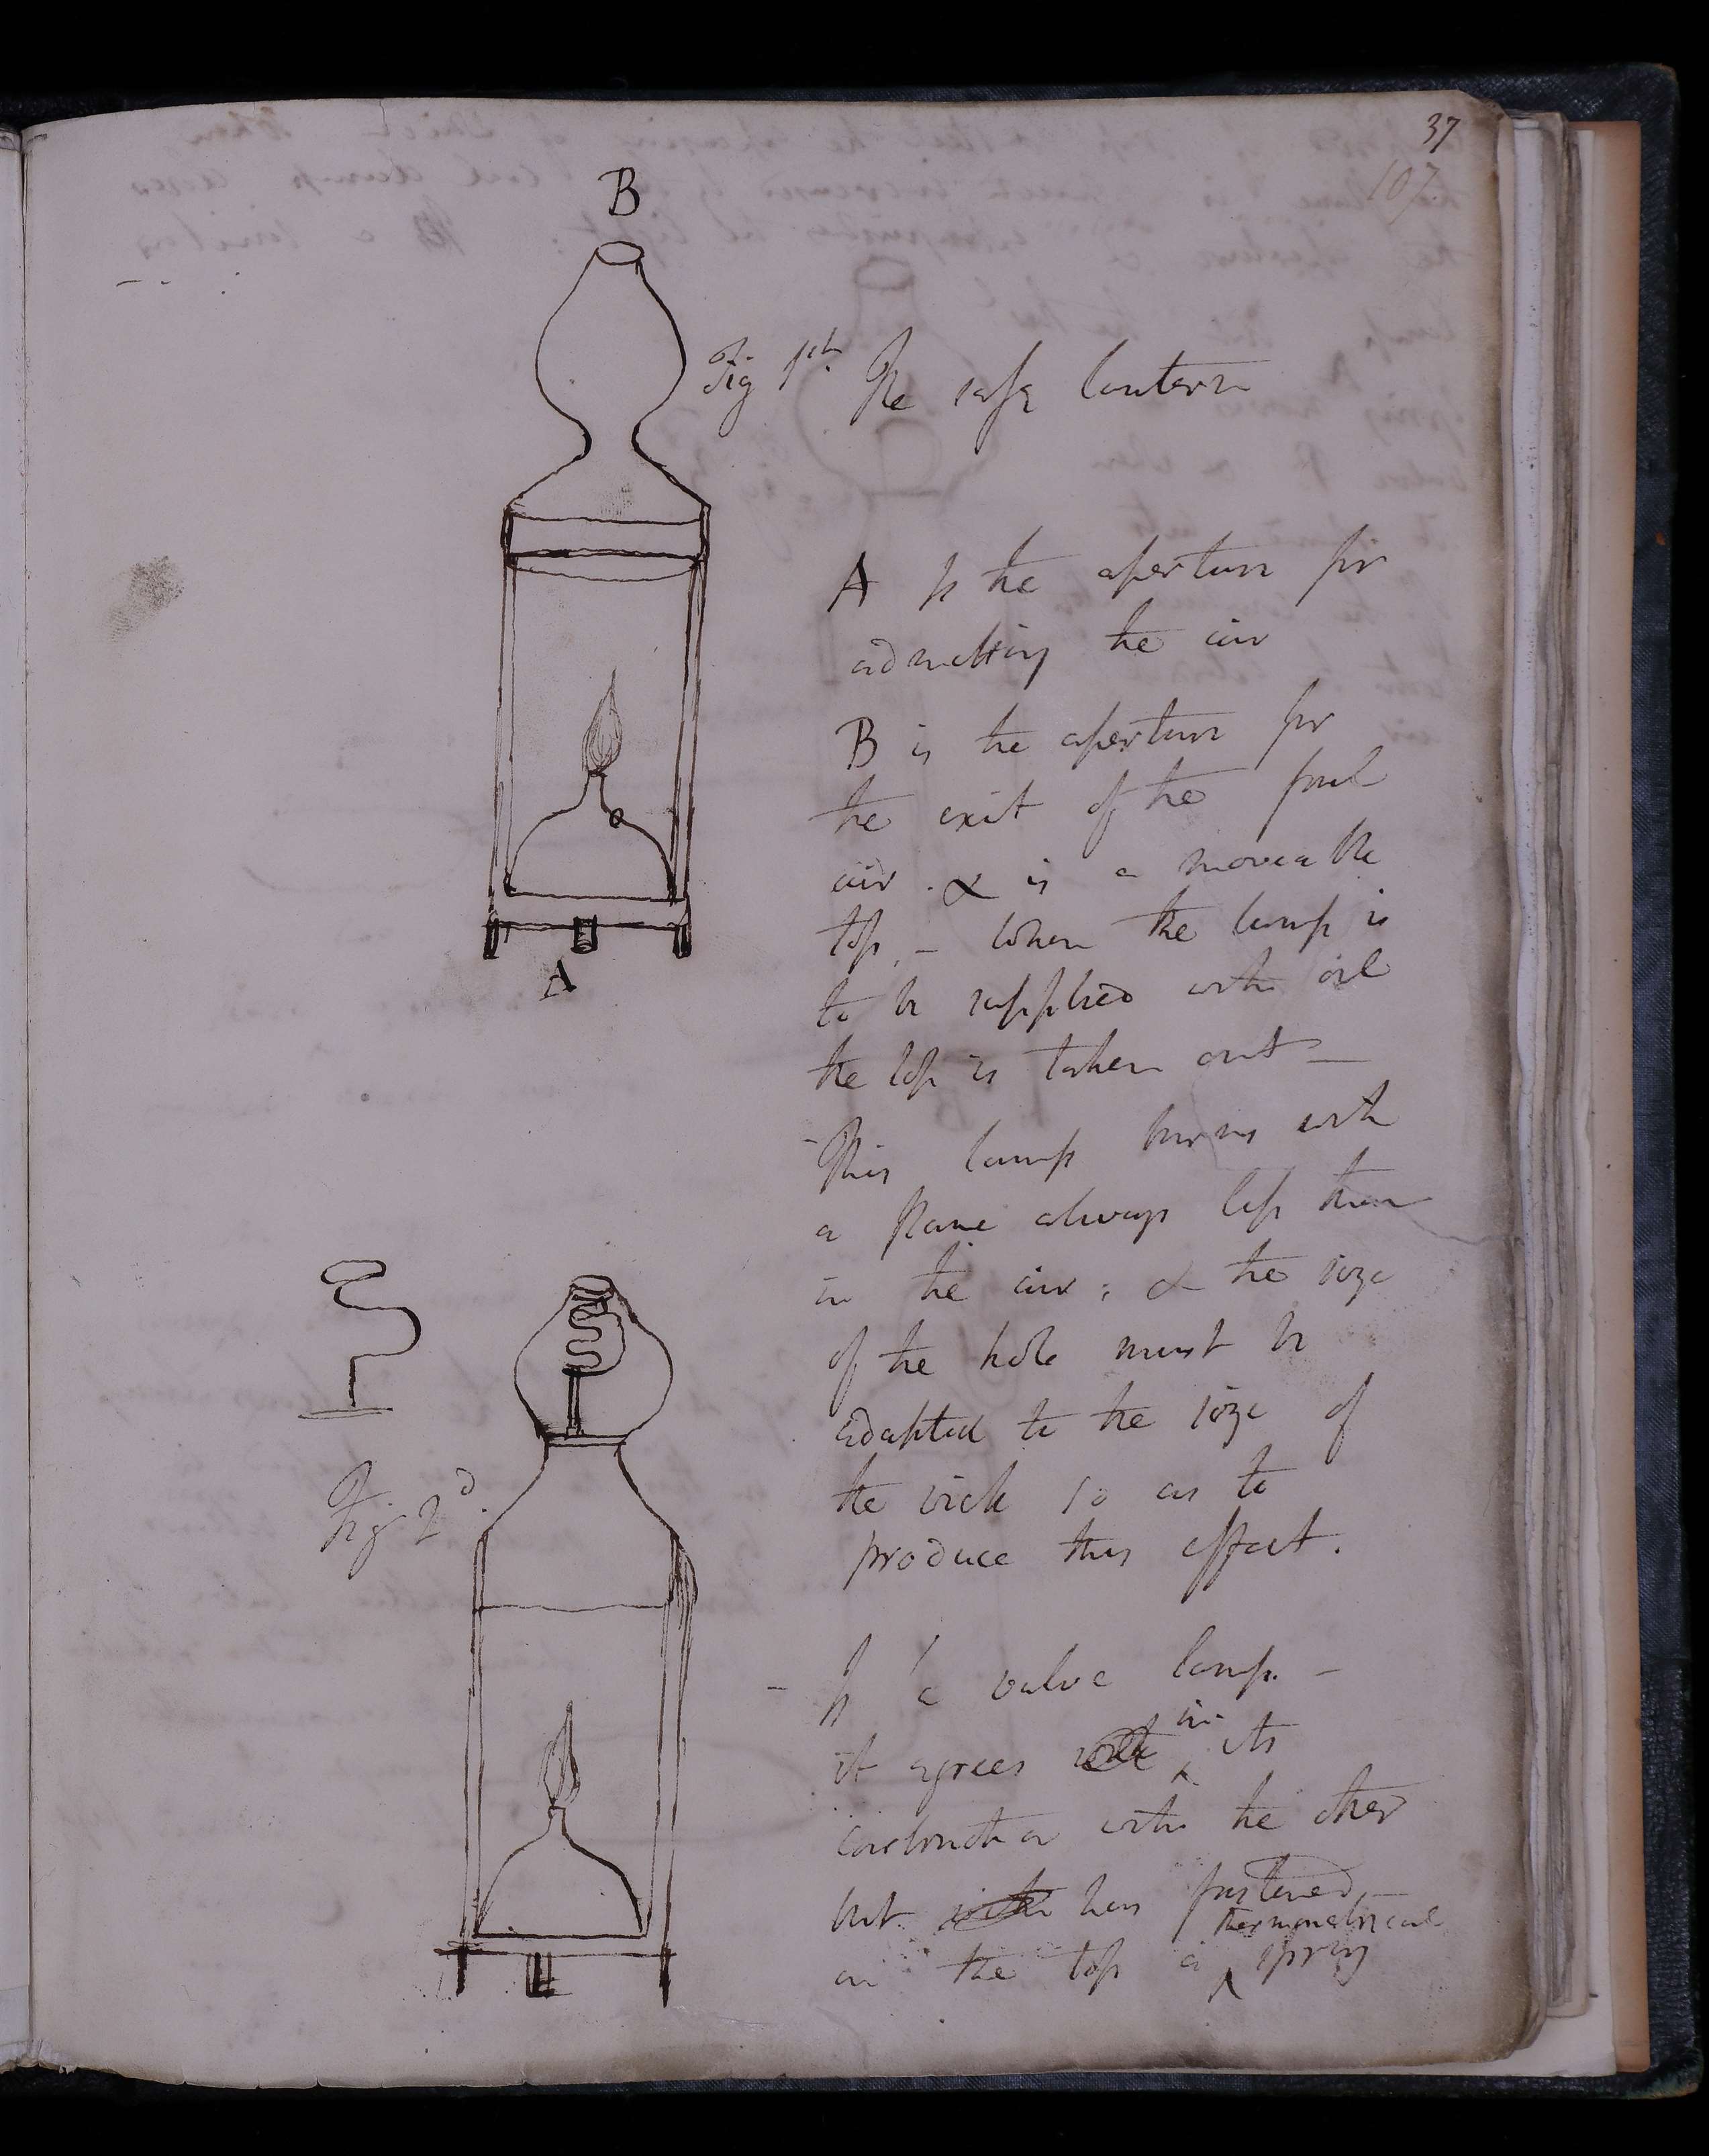 37
107
B
Fig 1st. The safe lantern
A Is the aperture for
admitting the air
B is the aperture for
the exit of the foul
air. & is a moveable
top. - When the lamp is
to be supplied with oil
the top is taken out -
This lamp burns with
a flame always less than
in the air; & the size
of the hole must be
adapted to the size of
the wick so as to
produce this effect.
A
Fig 2d.
- Is a valve lamp. -
it agrees with in its
construction with the other
but has fastened
on the top a thermometrical spring